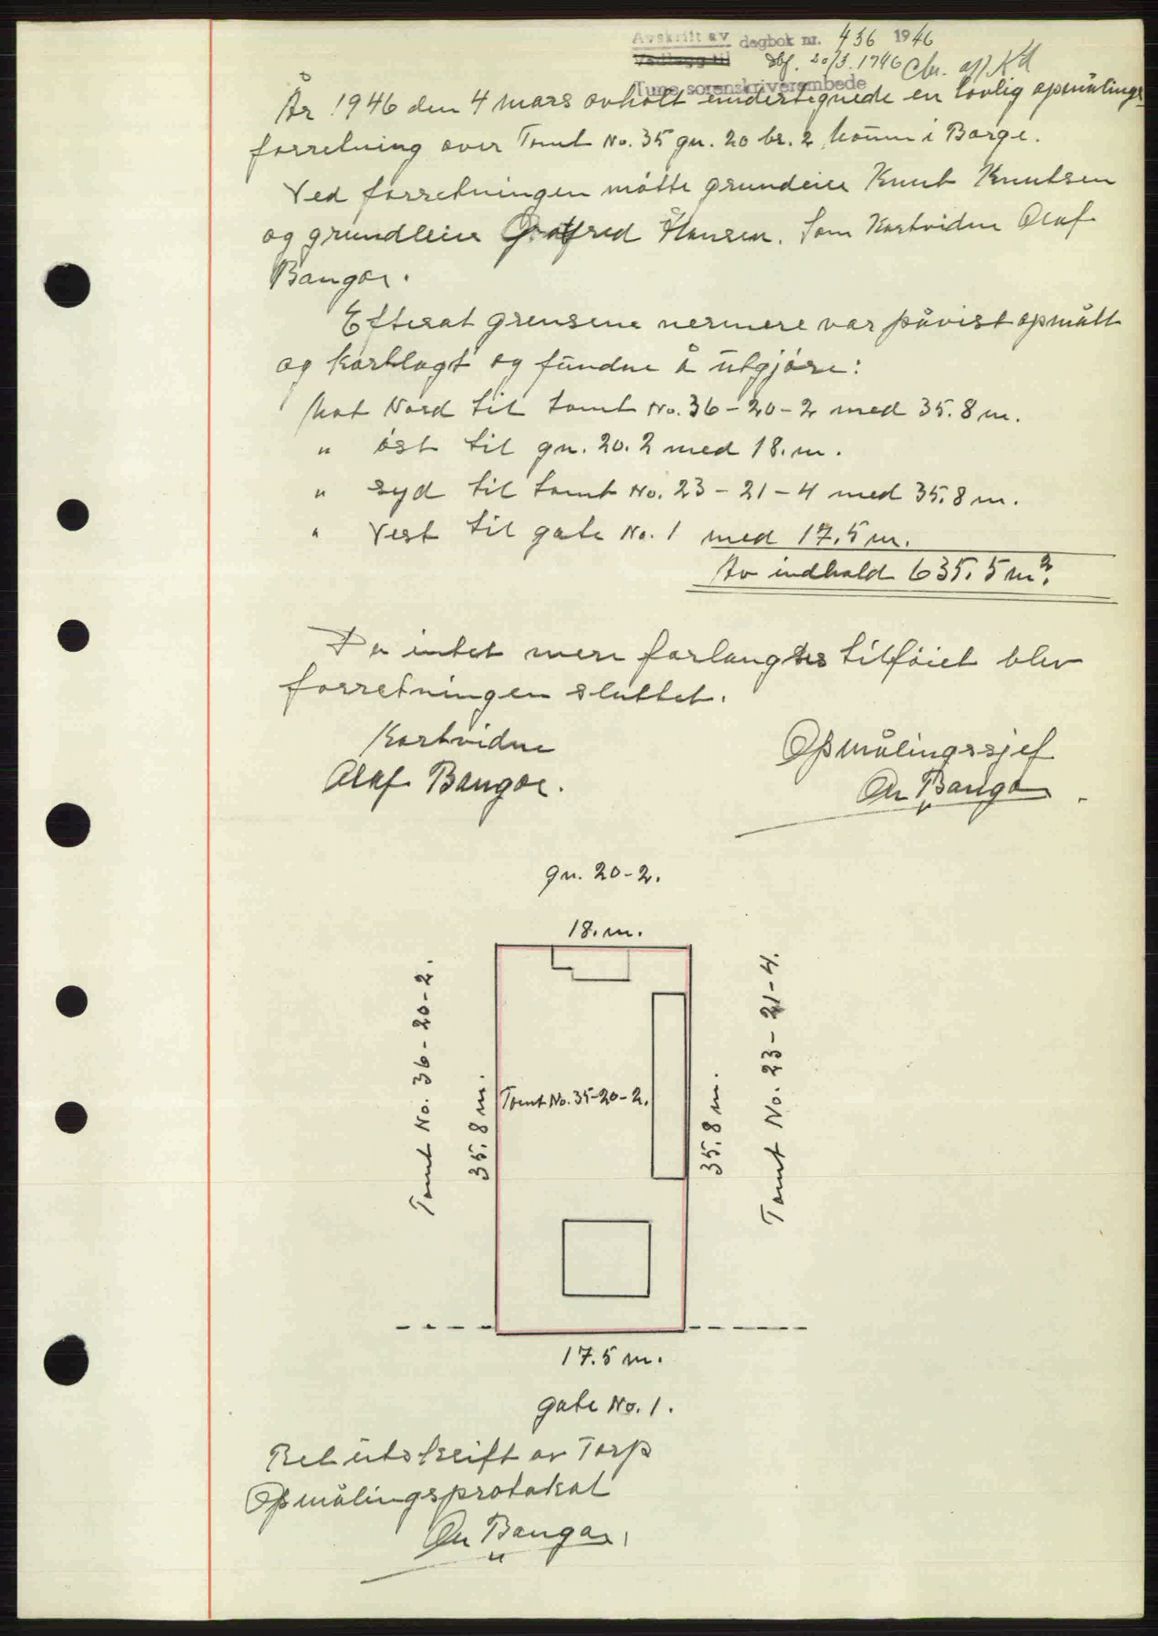 Avskrift av dagbok nr. 436 1946
Vedlegg til dbf. 20/3. 1946
Tune sorenskriverembede
År 1946 den 4 mars avholt undertegnede en lovlig opmålings
forretning over Tomt No. 35 gn. 20 br. 2 komm i Borge.
Ved forretningen møtte grundeier Knut Knutsen
og grundleier Hansen. Som Kartvidne Olaf
Bangor.
Efterat grensene nermere var påvist opmålt
og kartlagt og fundne å utgjøre:
Mot Nord til tomt No. 36-20-2 med 35.8 m.
" øst til gn. 20.2 med 18. m.
" syd til tomt No. 23-21-4 med 35.8 m.
" Vest til gate No. 1 med 17.5 m.
Av indhold 635.5 m².
Da intet mere forlangtes tilføiet blev
forretningen sluttet.
Kartvidne
Olaf Bangor.
Opmålingssjef
On Bangor
gn. 20-2.
18. m.
Tomt No. 36-20-2.
35.8 m.
Tomt No. 35-20-2.
35.8 m.
Tomt No. 23-21-4.
17.5 m.
gate No. 1.
Ret utskrift av Torp
Opmålingsprotokol
On Bangor